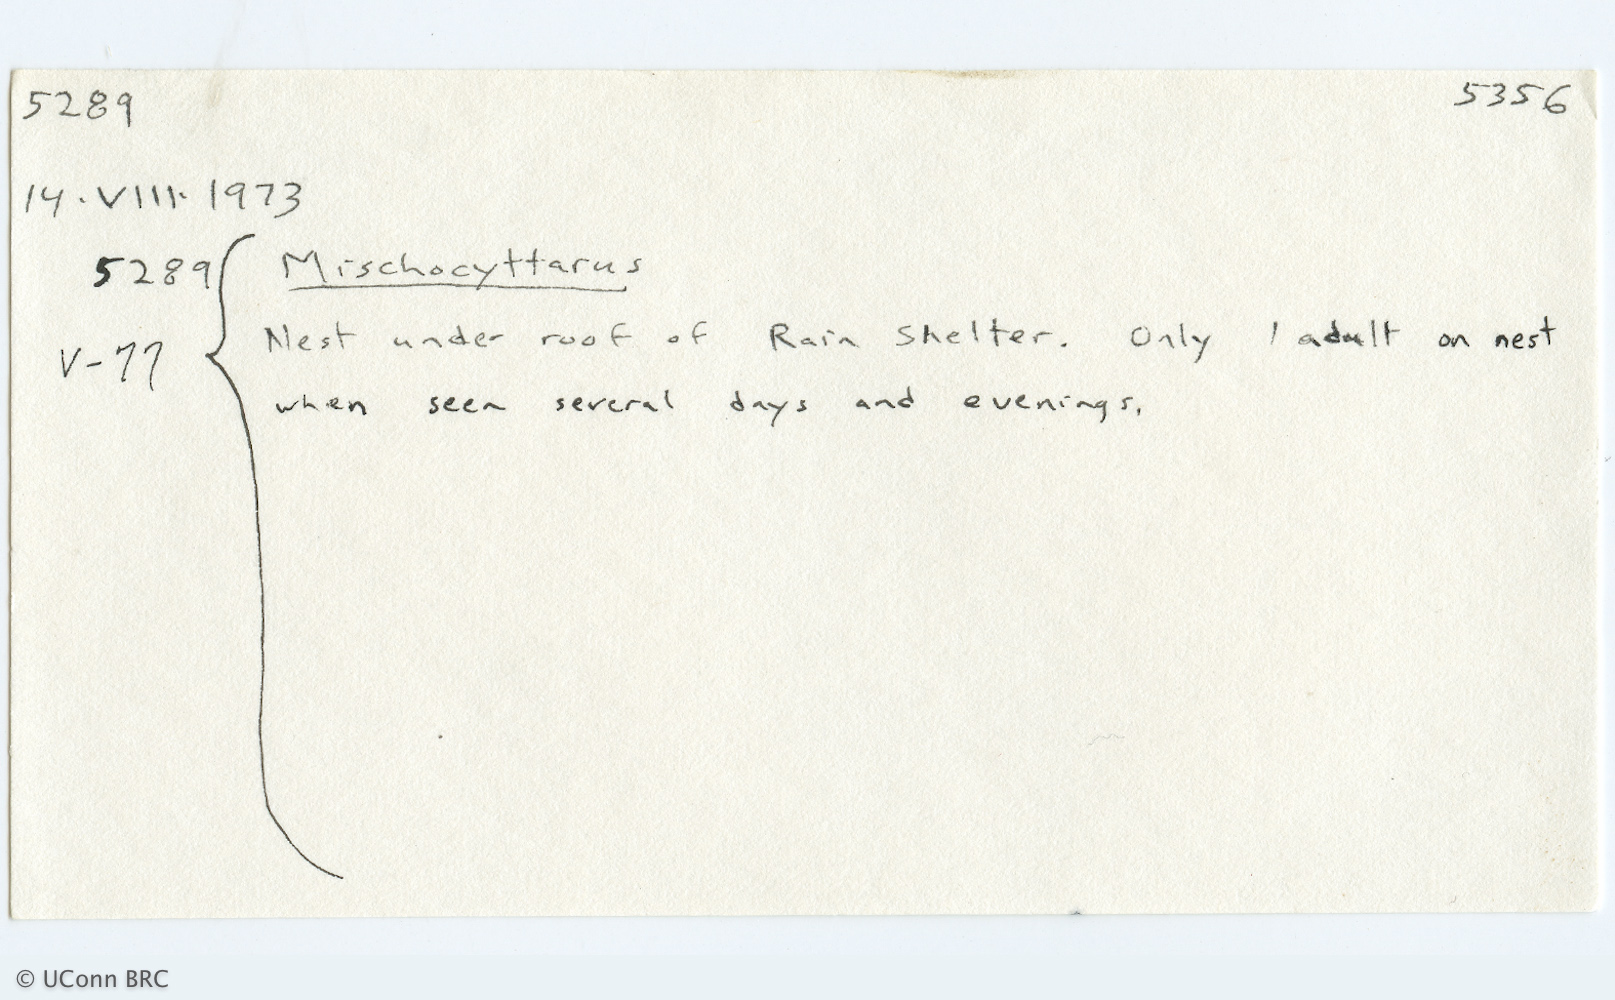 5289 5356
14·VIII·1973
5289 Mischocyttarus
V-77 Nest under roof of Rain Shelter. Only 1 adult on nest
when seen several days and evenings.
© UConn BRC